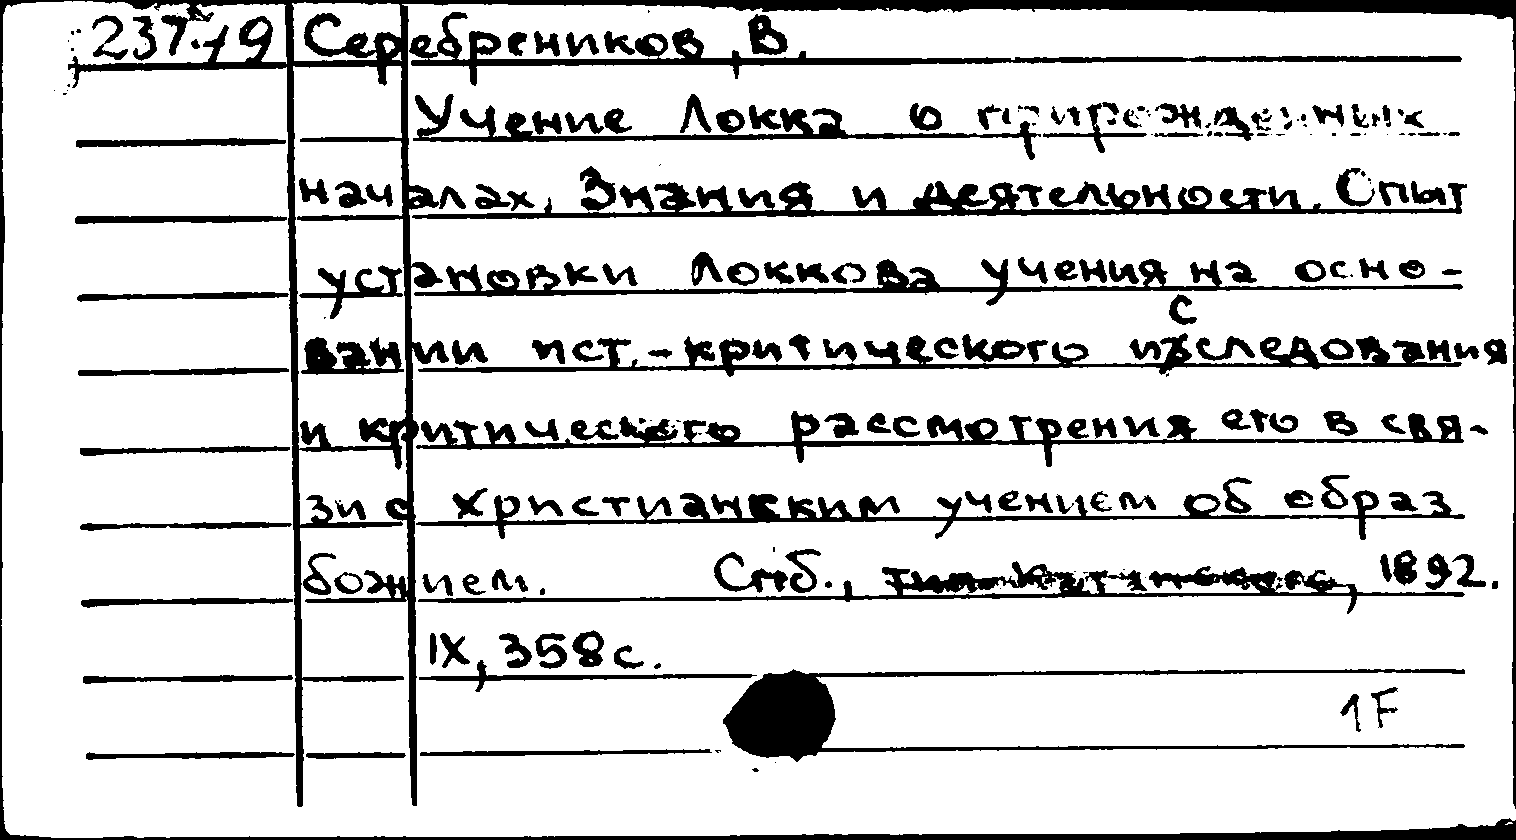 237.-19 Серебреников, В.
Учение Локка о прирожденных
началах, Знания и деятельности. Опыт
установки Локкова учения на осно-
вании ист.-критического исследования
и критического рассмотрения его в свя-
зи с христианским учением об образ
божием. Спб., 1892.
IX, 358 с.
1F